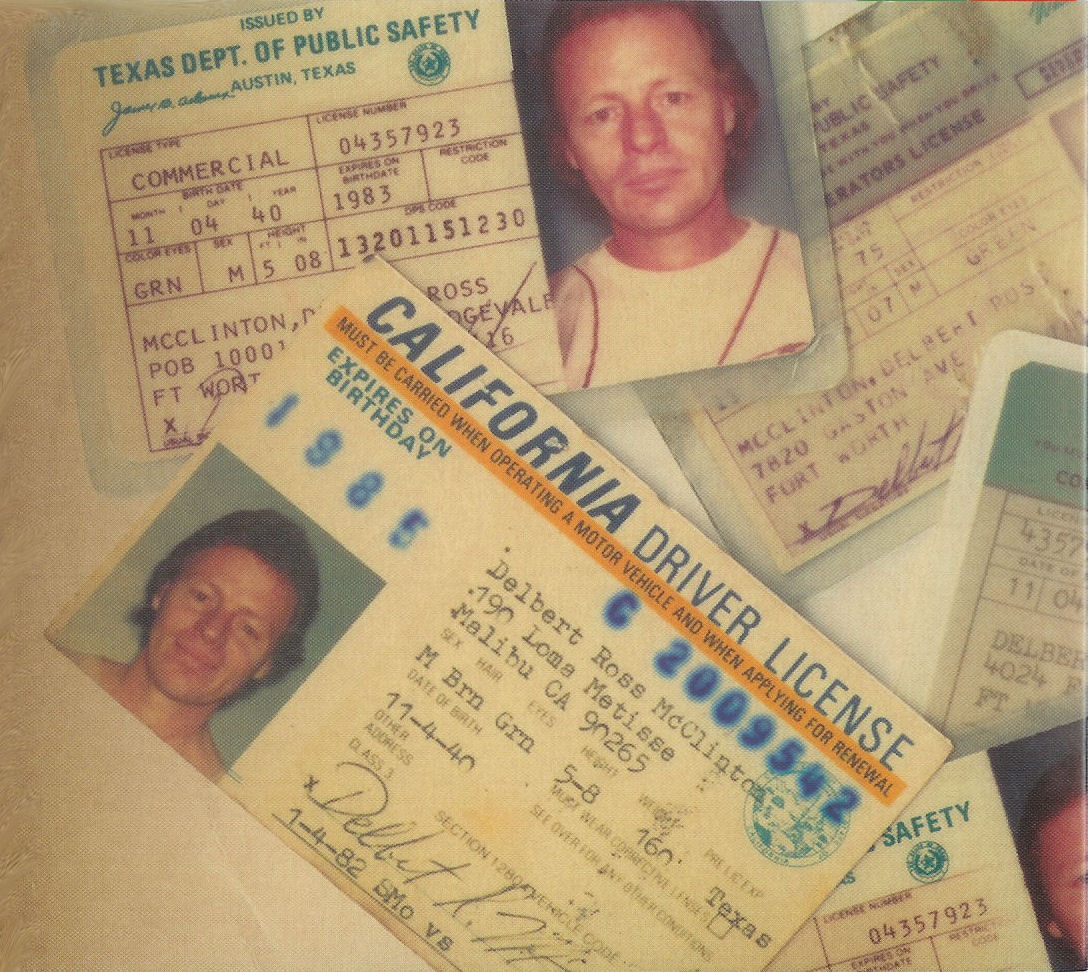 ISSUED BY
TEXAS DEPT. OF PUBLIC SAFETY
AUSTIN, TEXAS
LICENSE TYPE
COMMERCIAL
LICENSE NUMBER
04357923
BIRTH DATE
MONTH DAY YEAR
11 04 40
EXPIRES ON
BIRTHDATE
1983
RESTRICTION
CODE
COLOR EYES
GRN
SEX
M
HEIGHT
FT IN
5 08
DPS CODE
13201151230
MCCLINTON, ROSS
POB 1000
FT WORT
X
CALIFORNIA DRIVER LICENSE
MUST BE CARRIED WHEN OPERATING A MOTOR VEHICLE AND WHEN APPLYING FOR RENEWAL
EXPIRES ON
BIRTHDAY
1985
C 2009542
Delbert Ross McClinton
790 Loma Metisse
Malibu CA 90265
SEX HAIR EYES HEIGHT
M Brn Grn 5-8 160
DATE OF BIRTH
11-4-40
PRE LIC EXP
Texas
OTHER
ADDRESS
CLASS 3
MUST WEAR CORRECTIVE LENSES
SEE OVER FOR ANY OTHER CONDITIONS
X Delbert R.
SECTION 12804 VEHICLE CODE
1-4-82 SMo vs
PUBLIC SAFETY
TEXAS
ERATORS LICENSE
RESTRICTION
75
COLOR EYES
GREEN
SEX
07 M
MCCLINTON, DELBERT ROSS
7820 GASTON AVE
FORT WORTH
X Delbert
CO
4357
DATE OF
11 04
DELBER
4024
FT
SAFETY
LICENSE NUMBER
04357923
EXPIRES ON
RESTRICTI
CODE